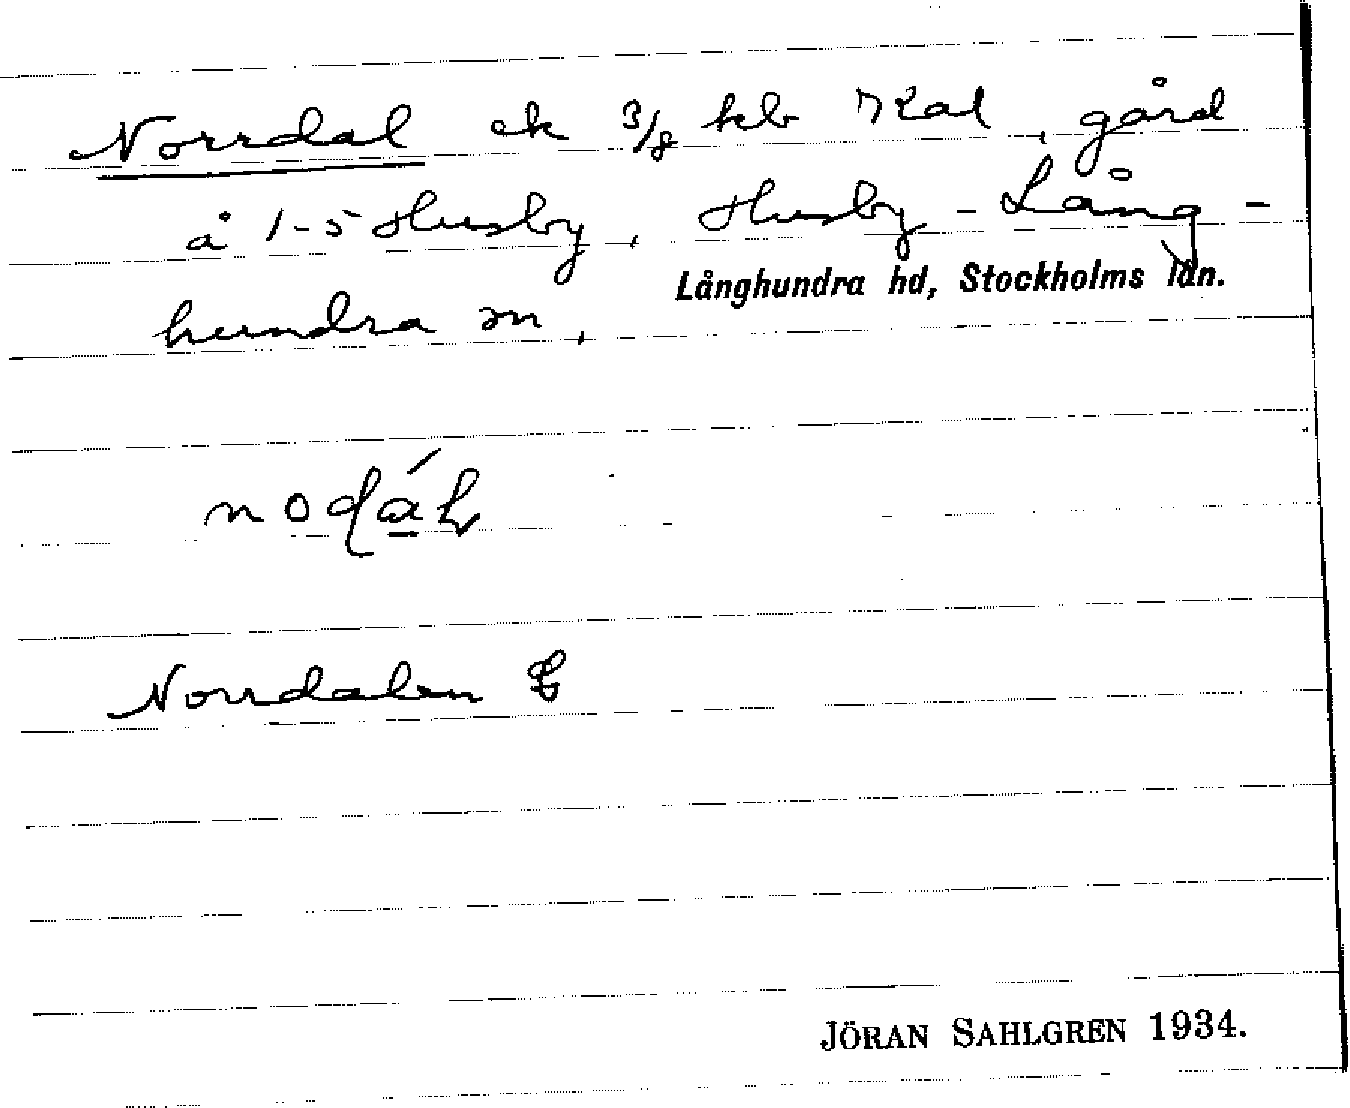 Norrdal ek 3/8 kb Kat, gård
å 1-5 Husby, Husby-Lång-
hundra sn,
Långhundra hd, Stockholms län.
Norrdalen E
JÖRAN SAHLGREN 1934.